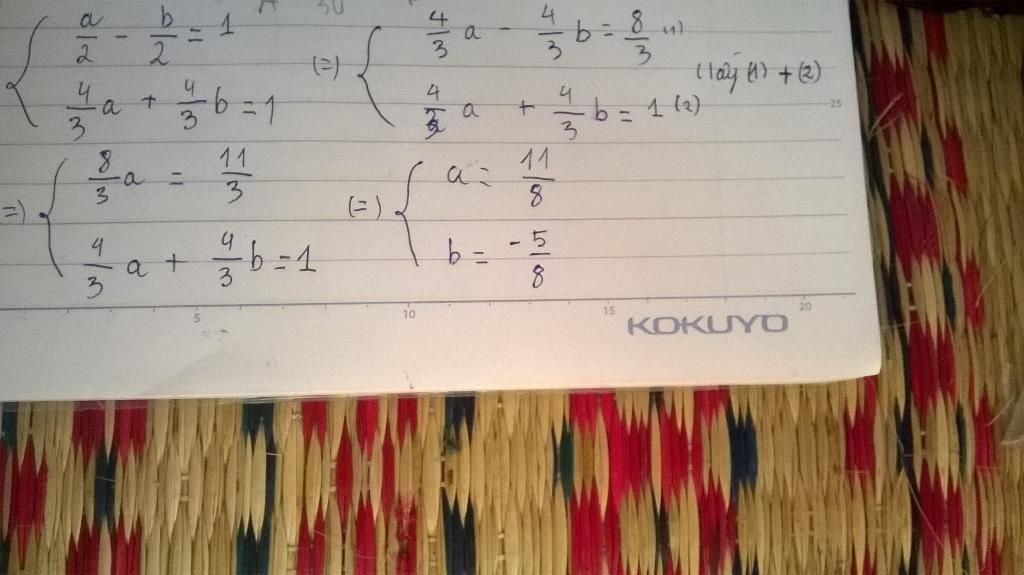 a/2 - b/2 = 1 (=) 4/3 a - 4/3 b = 8/3 (1)
4/3 a + 4/3 b = 1 4/3 a + 4/3 b = 1 (2) (lấy (1) + (2)
25
=) 8/3 a = 11/3 (=) a = 11/8
4/3 a + 4/3 b = 1 b = -5/8
5 10 15 20
KOKUYO